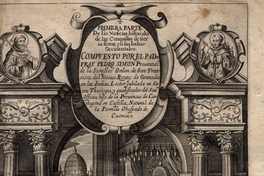 PRIMERA PARTE
De las Noticias historiales
de las Conquistas de tier
ra firme en las Indias
Occidentales.
COMPVESTO POR EL PAD
FRAY PEDRO SIMON Provincial
de la Serafica Orden de San Fran
cisco, del Nuevo Reyno de Granada
en las Indias, Lector Jubilado en Sa
cra Theologia, y qualificador del San
Officio, hijo de la Provincia de Car
thagena en Castilla, Natural de
la Parrilla Obispado de
Cuenca